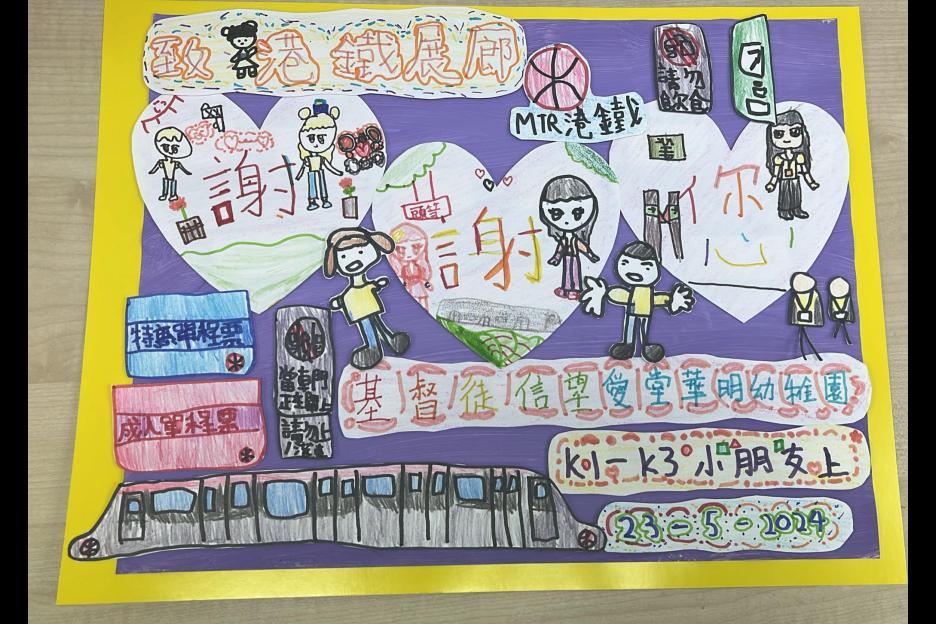 致港鐵展廊
MTR港鐵
請勿
飲食
謝
謝
您
頭等
特惠單程票
成人單程票
當車門
正在關上
請勿上
基督徒信望愛堂華明幼稚園
K1-K3小朋友上
23-5-2024